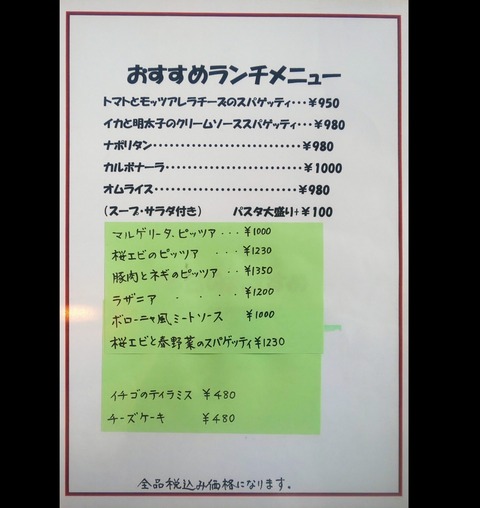 おすすめランチメニュー
トマトとモッツアレラチーズのスパゲッティ･･･￥950
イカと明太子のクリームソーススパゲッティ･･･￥980
ナポリタン･･････････････････････････￥980
カルボナーラ････････････････････････￥1000
オムライス･････････････････････････￥980
(スープ・サラダ付き) パスタ大盛り+￥100
マルゲリータ.ピッツア ･･･￥1000
桜エビのピッツア ･･･￥1230
豚肉とネギのピッツア ･･￥1350
ラザニア ････￥1200
ボローニャ風ミートソース ￥1000
桜エビと春野菜のスパゲッティ￥1230
イチゴのティラミス ￥480
チーズケーキ ￥480
全品税込み価格になります。